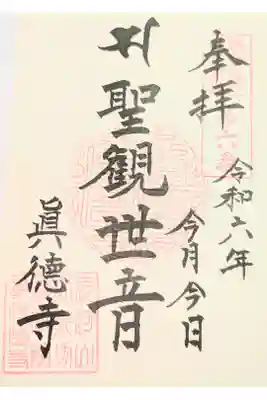 奉拝
令和六年
今月今日
聖觀世音
眞徳寺